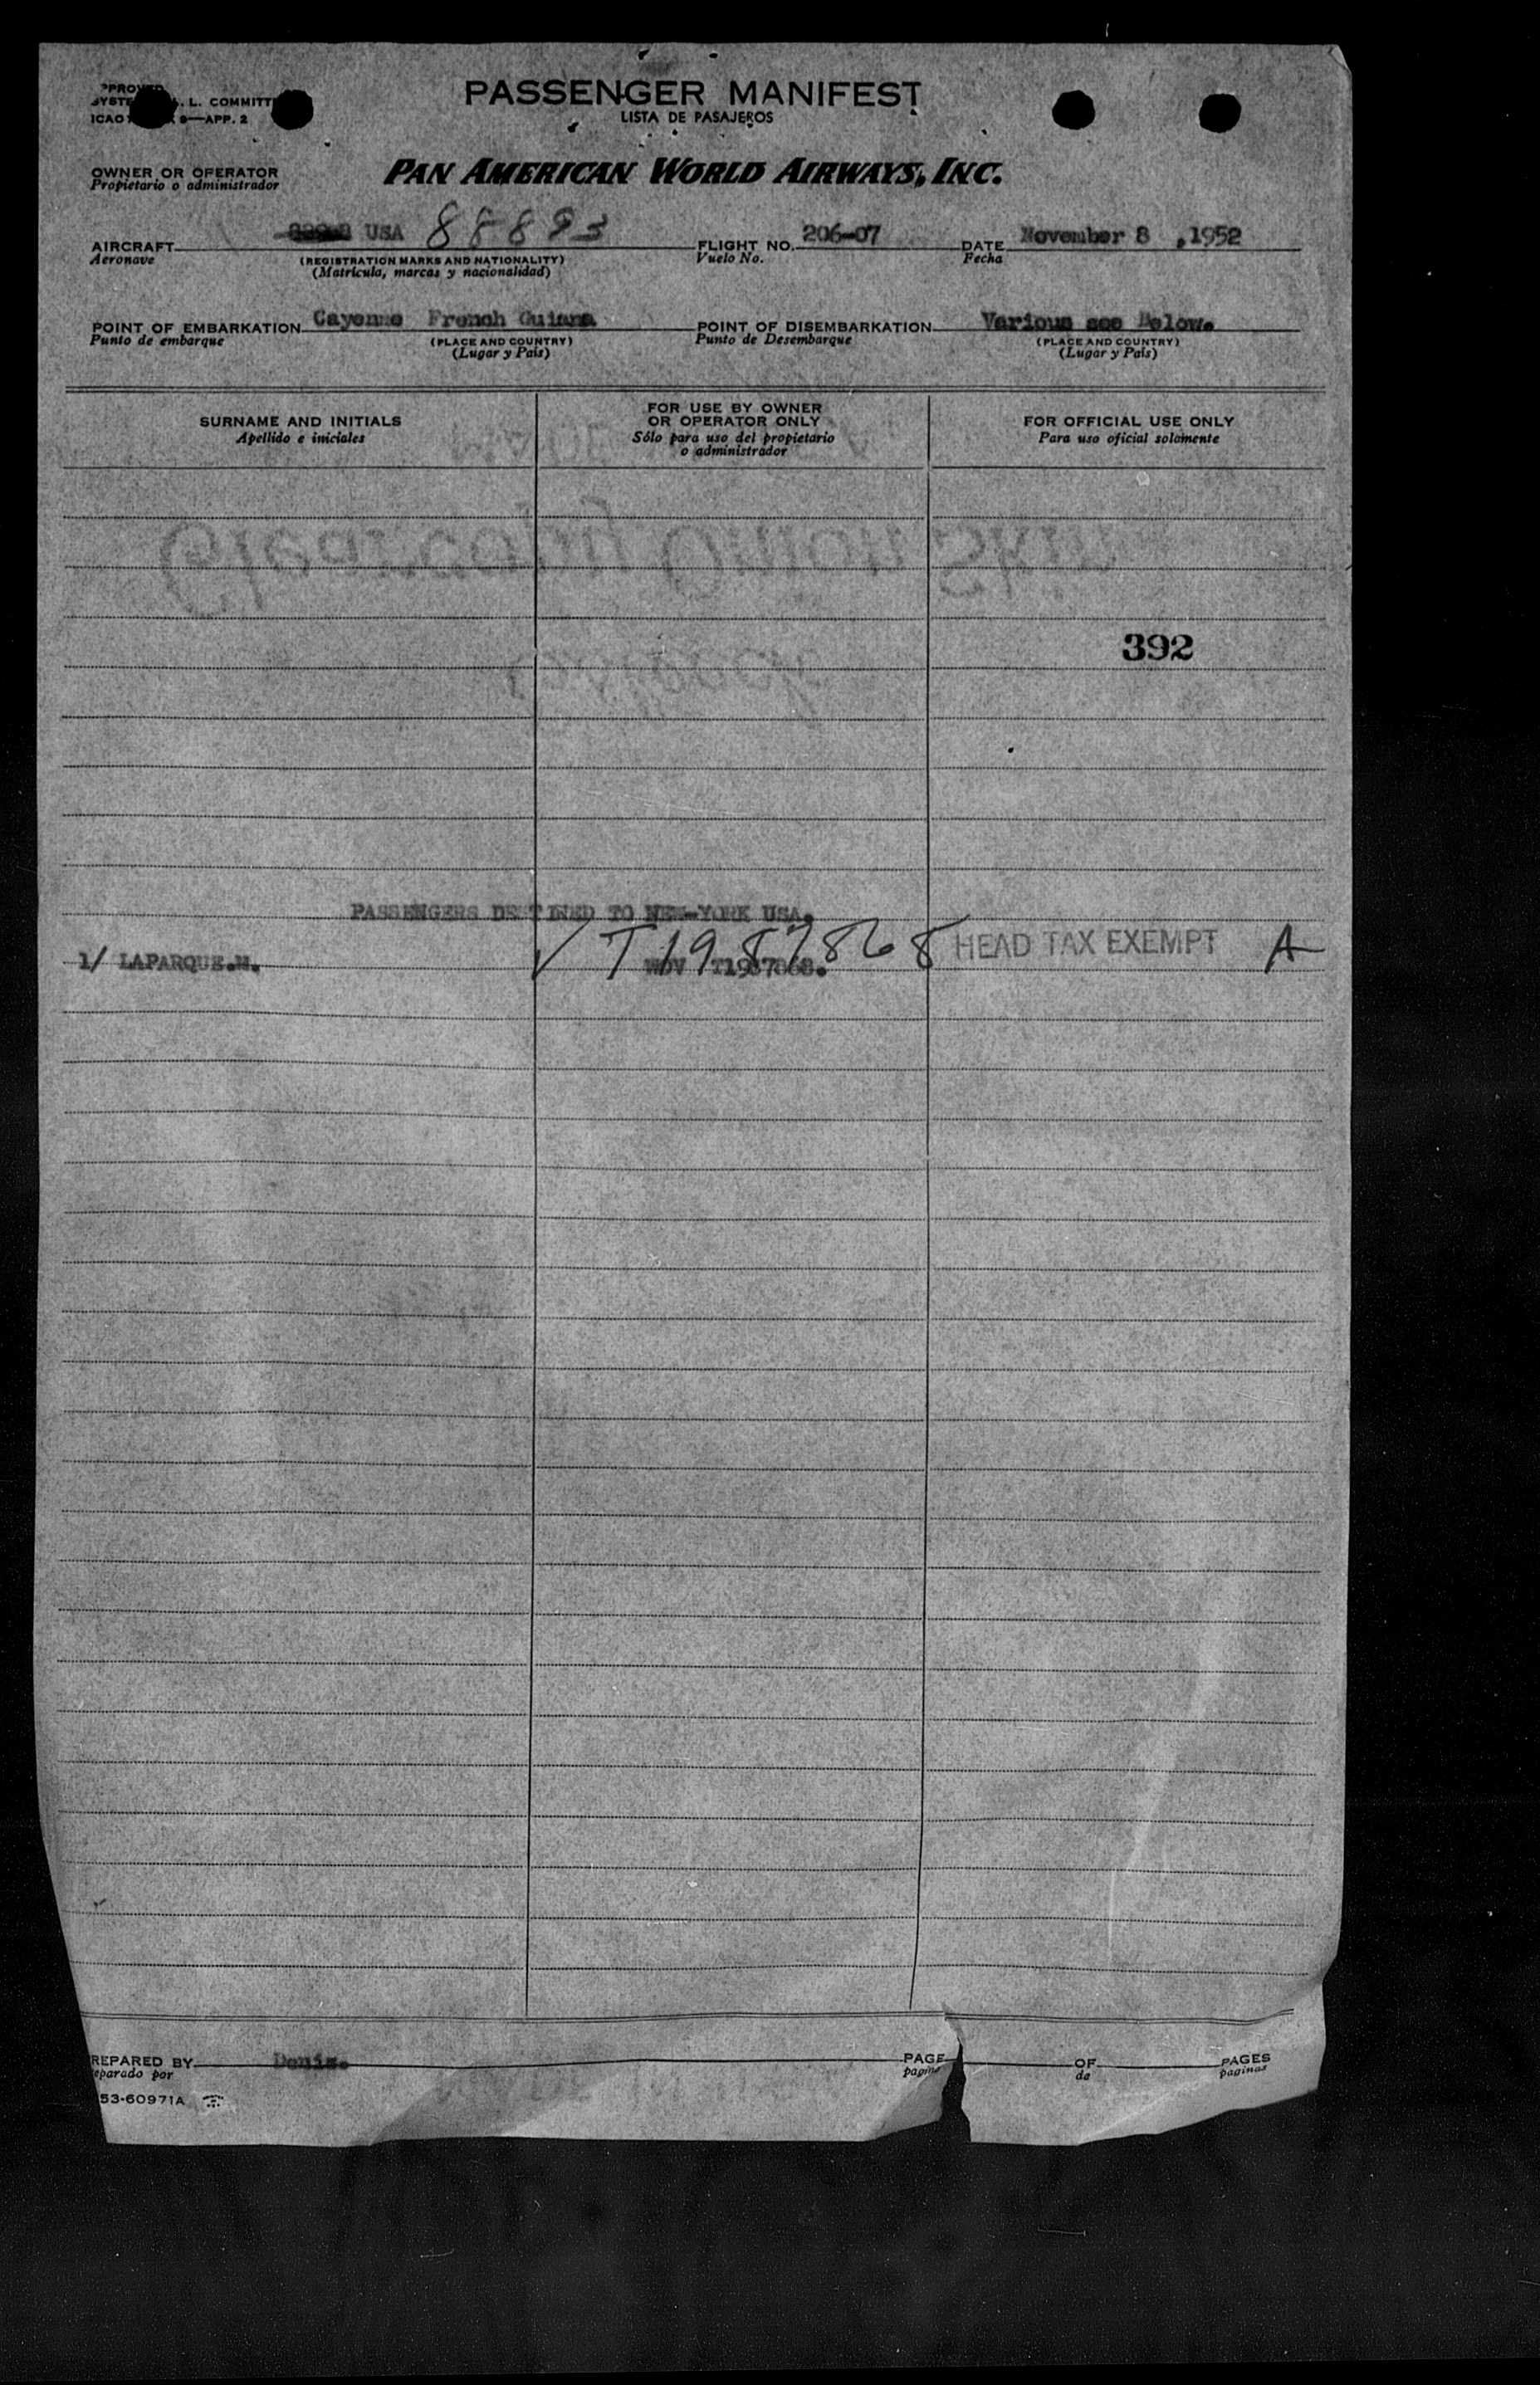 PASSENGER MANIFEST
LISTA DE PASAJEROS
L. COMMITT
ICAO 9—APP. 2
OWNER OR OPERATOR
Propietario o administrador
PAN AMERICAN WORLD AIRWAYS, INC.
AIRCRAFT USA 88883 FLIGHT NO. 206-07 DATE November 8 ,1952
Aeronave (REGISTRATION MARKS AND NATIONALITY) Vuelo No. Fecha
(Matrícula, marcas y nacionalidad)
POINT OF EMBARKATION Cayenne French Guiana POINT OF DISEMBARKATION Various see Below.
Punto de embarque (PLACE AND COUNTRY) Punto de Desembarque (PLACE AND COUNTRY)
(Lugar y País) (Lugar y País)
SURNAME AND INITIALS
Apellido e iniciales
FOR USE BY OWNER
OR OPERATOR ONLY
Sólo para uso del propietario
o administrador
FOR OFFICIAL USE ONLY
Para uso oficial solamente
392
PASSENGERS DESTINED TO NEW-YORK USA.
1/ LAPARQUE.M. ✓ T1987868 HEAD TAX EXEMPT A
REPARED BY Denis. PAGE OF PAGES
eparado por pagina de paginas
53-60971A